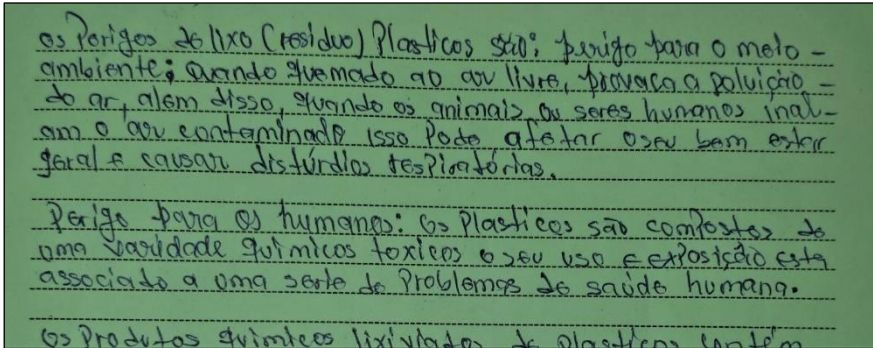 os Perigos de lixo (residuo) Plasticos são: perigo para o meio-
ambiente; quando quemado ao ar livre, provaca a poluição -
do ar, alem disso, quando os animais ou seres humanos inal-
am o ar contaminado isso Pode afetar o seu bem estar
geral e causar distúrdios respiratórias.
Perigo para os humanos: os Plasticos são compostos de
uma varidade químicos toxicos o seu uso e exposição esta
associado a uma serie de Problemas de saúde humana.
os Produtos químicos lixiviados de plasticos contém